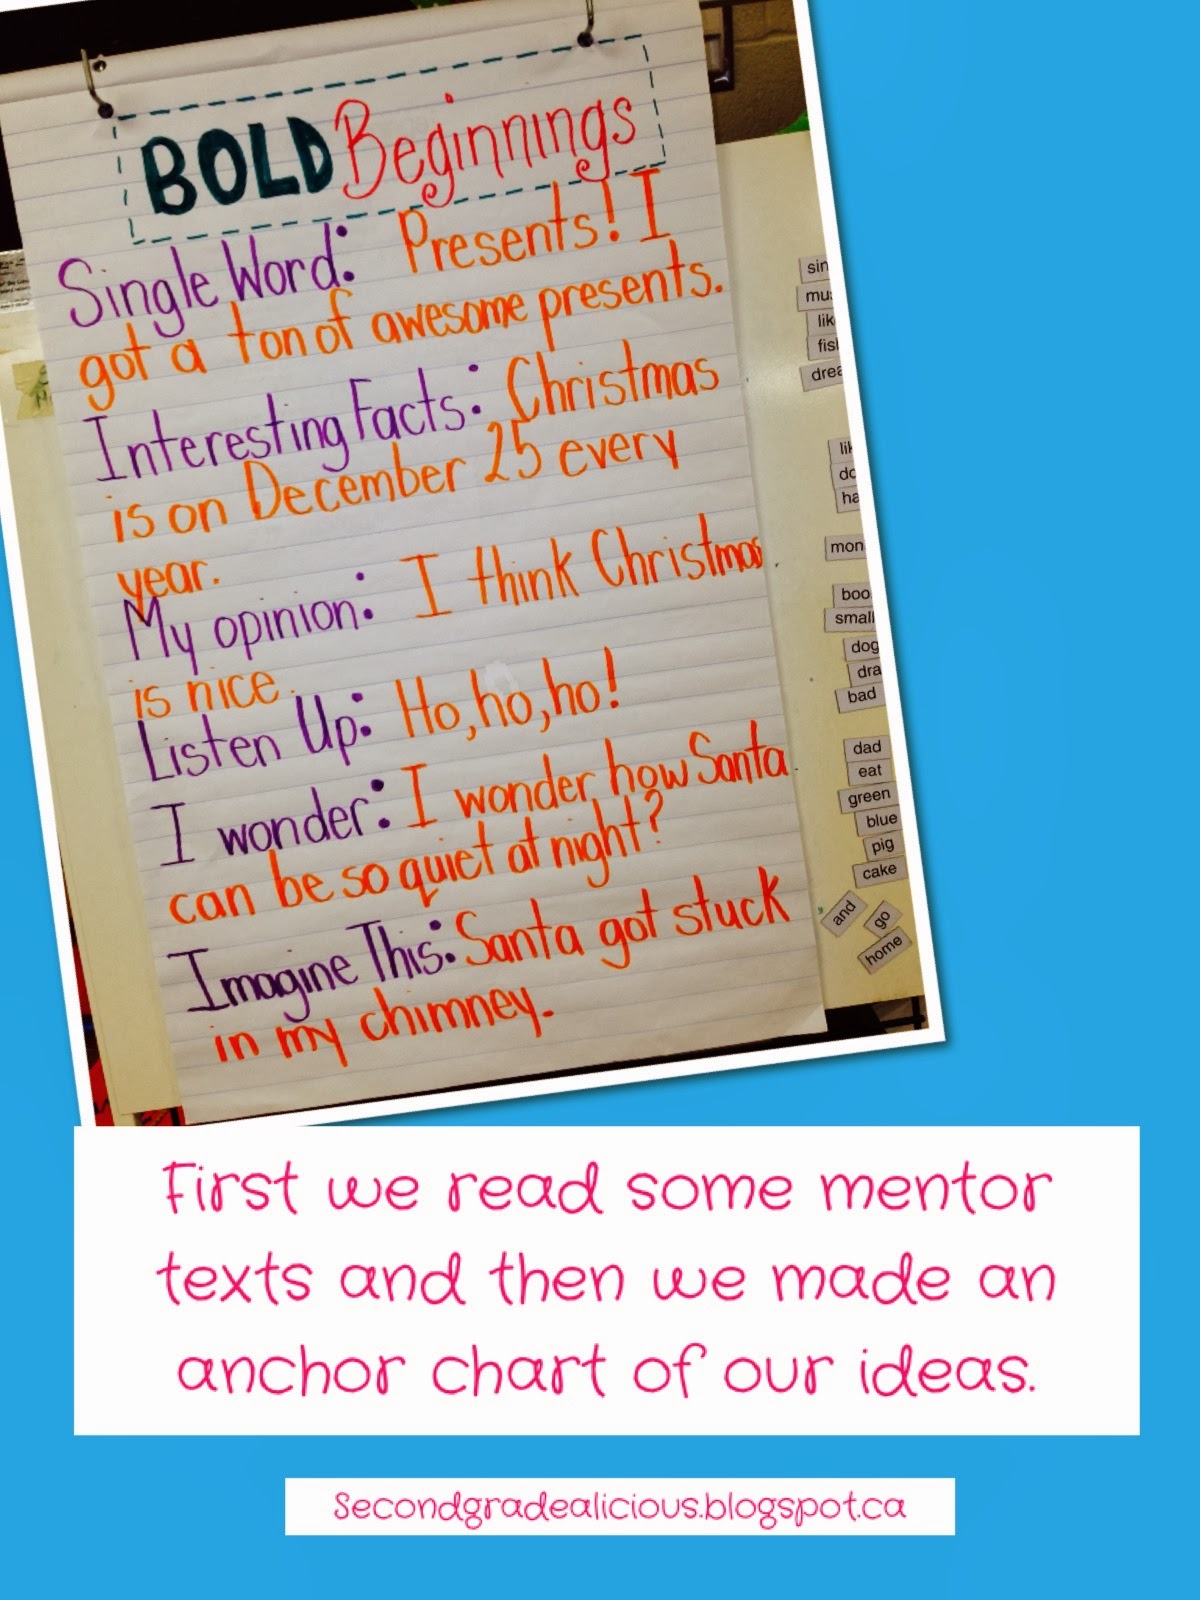 BOLD Beginnings
Single Word: Presents! I
got a ton of awesome presents.
Interesting Facts: Christmas
is on December 25 every
year.
My opinion: I think Christmas
is nice.
Listen Up: Ho, ho, ho!
I wonder: I wonder how Santa
can be so quiet at night?
Imagine This: Santa got stuck
in my chimney.
mon
boo
small
dog
dra
bad
dad
eat
green
blue
pig
cake
and
go
home
First we read some mentor
texts and then we made an
anchor chart of our ideas.
Secondgradealicious.blogspot.ca